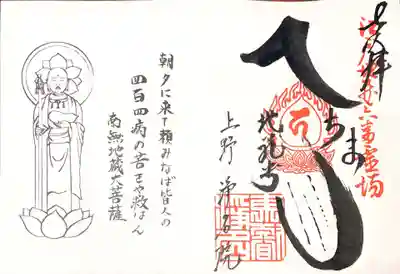 奉拝
へちま
地蔵尊
上野 浄名院
朝夕に来て頼みなば皆人の
四百四病の苦をや救はん
南無地蔵大菩薩